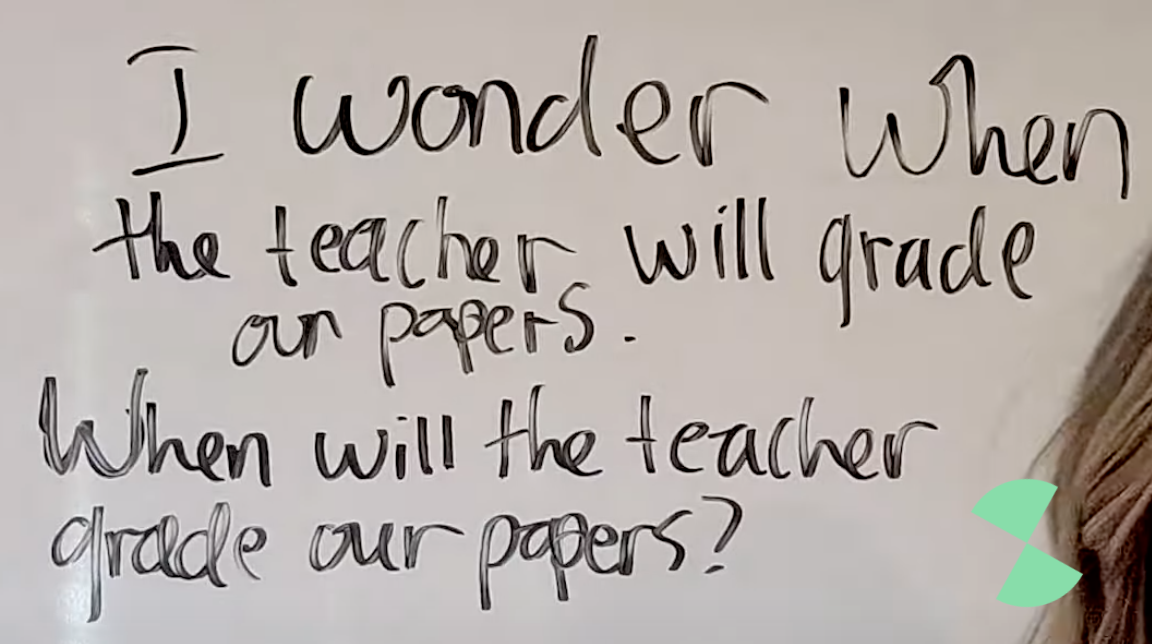 I wonder when
the teacher will grade
our papers.
When will the teacher
grade our papers?